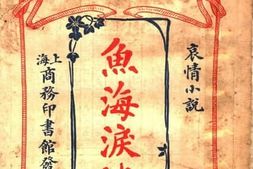 哀情小說
魚海淚
上海
商務印書館發